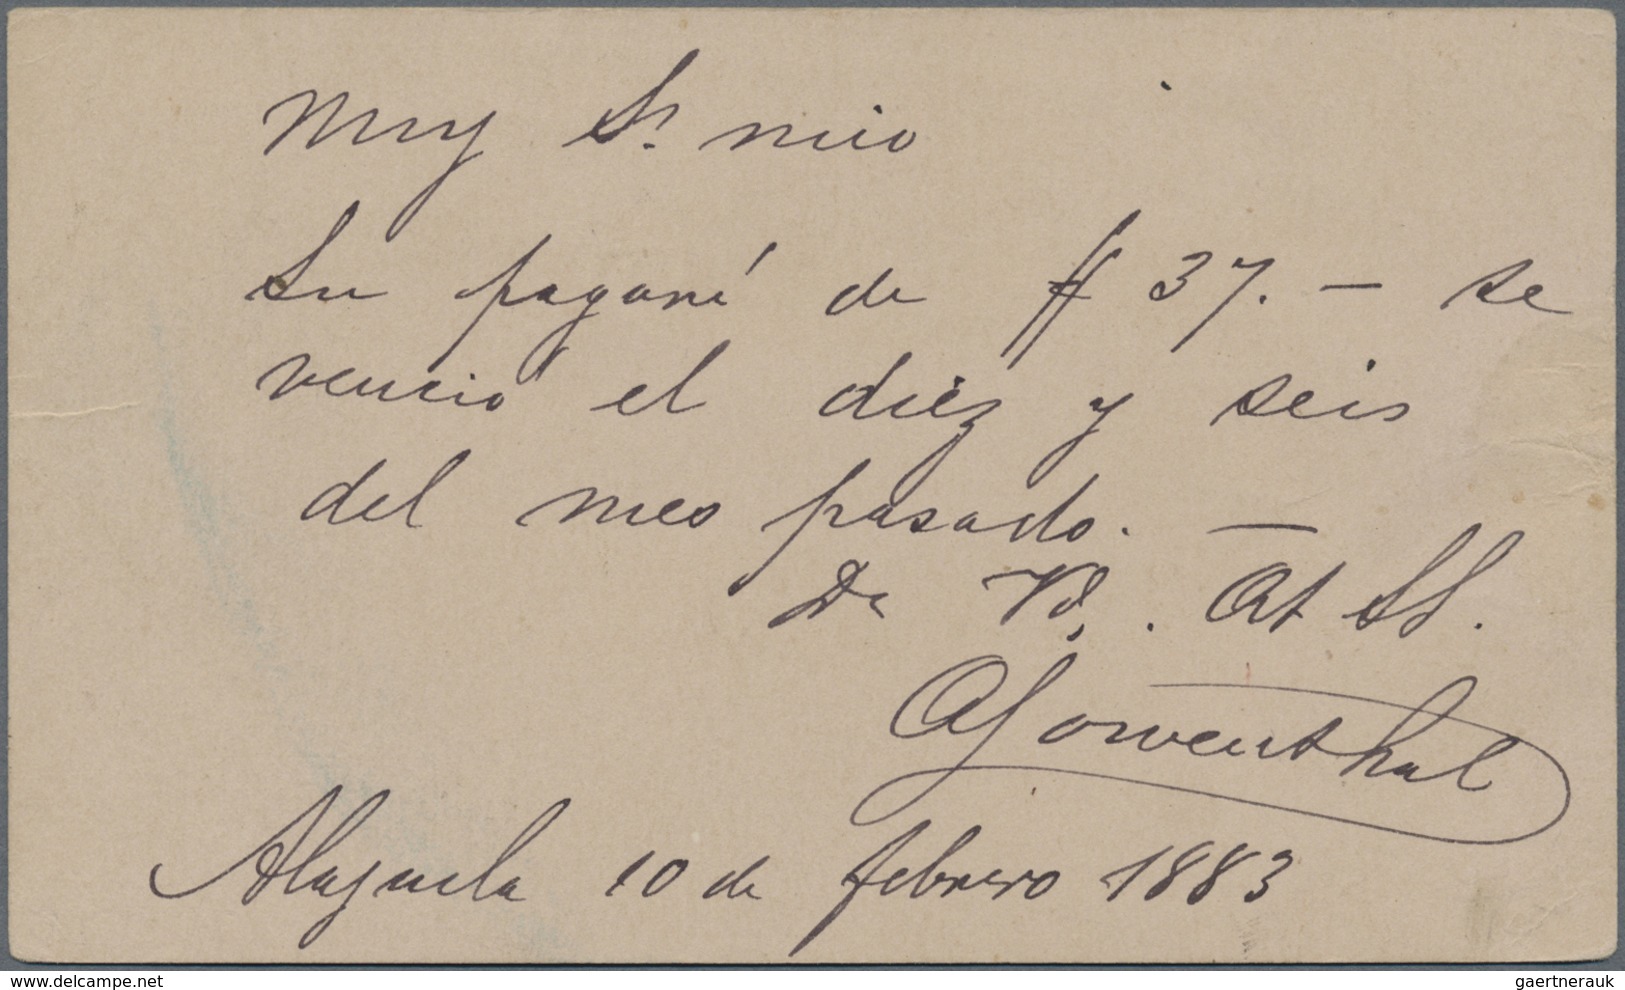 Muy Sr. mio
Su pagaré de $ 37. — se
venció el diez y seis
del mes pasado. —
De Vd. At SS.
A Lowenthal
Alajuela 10 de febrero 1883
gaertnerauk @ delcampe.net